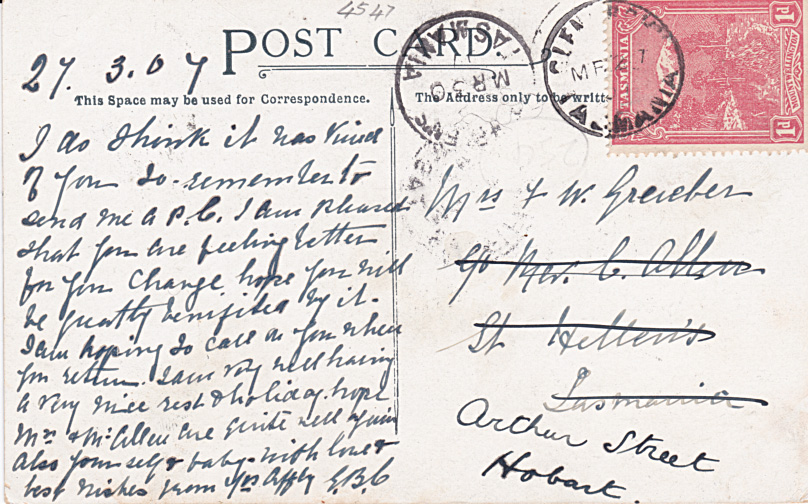 4547
POST CARD
27. 3. 07
This Space may be used for Correspondence.
The Address only to be writt
TASMANIA
MR 30
TASMANIA
TASMANIA
1D
1D
I do think it was kind
of you to remember to
send me a P.C. I am pleased
that you are feeling better
for your change hope you will
be greatly benifited by it.
I am hoping to call on you when
you return. I am very well having
a very nice rest & holiday. hope
Mrs & Mr Allen are quite well again
also yourself & baby. with love &
best wishes from Yrs Affly E.B.C
Mrs F W. Greicher
c/o Mrs. C. Allen
St Hellen's
Tasmania
Arthur Street
Hobart.